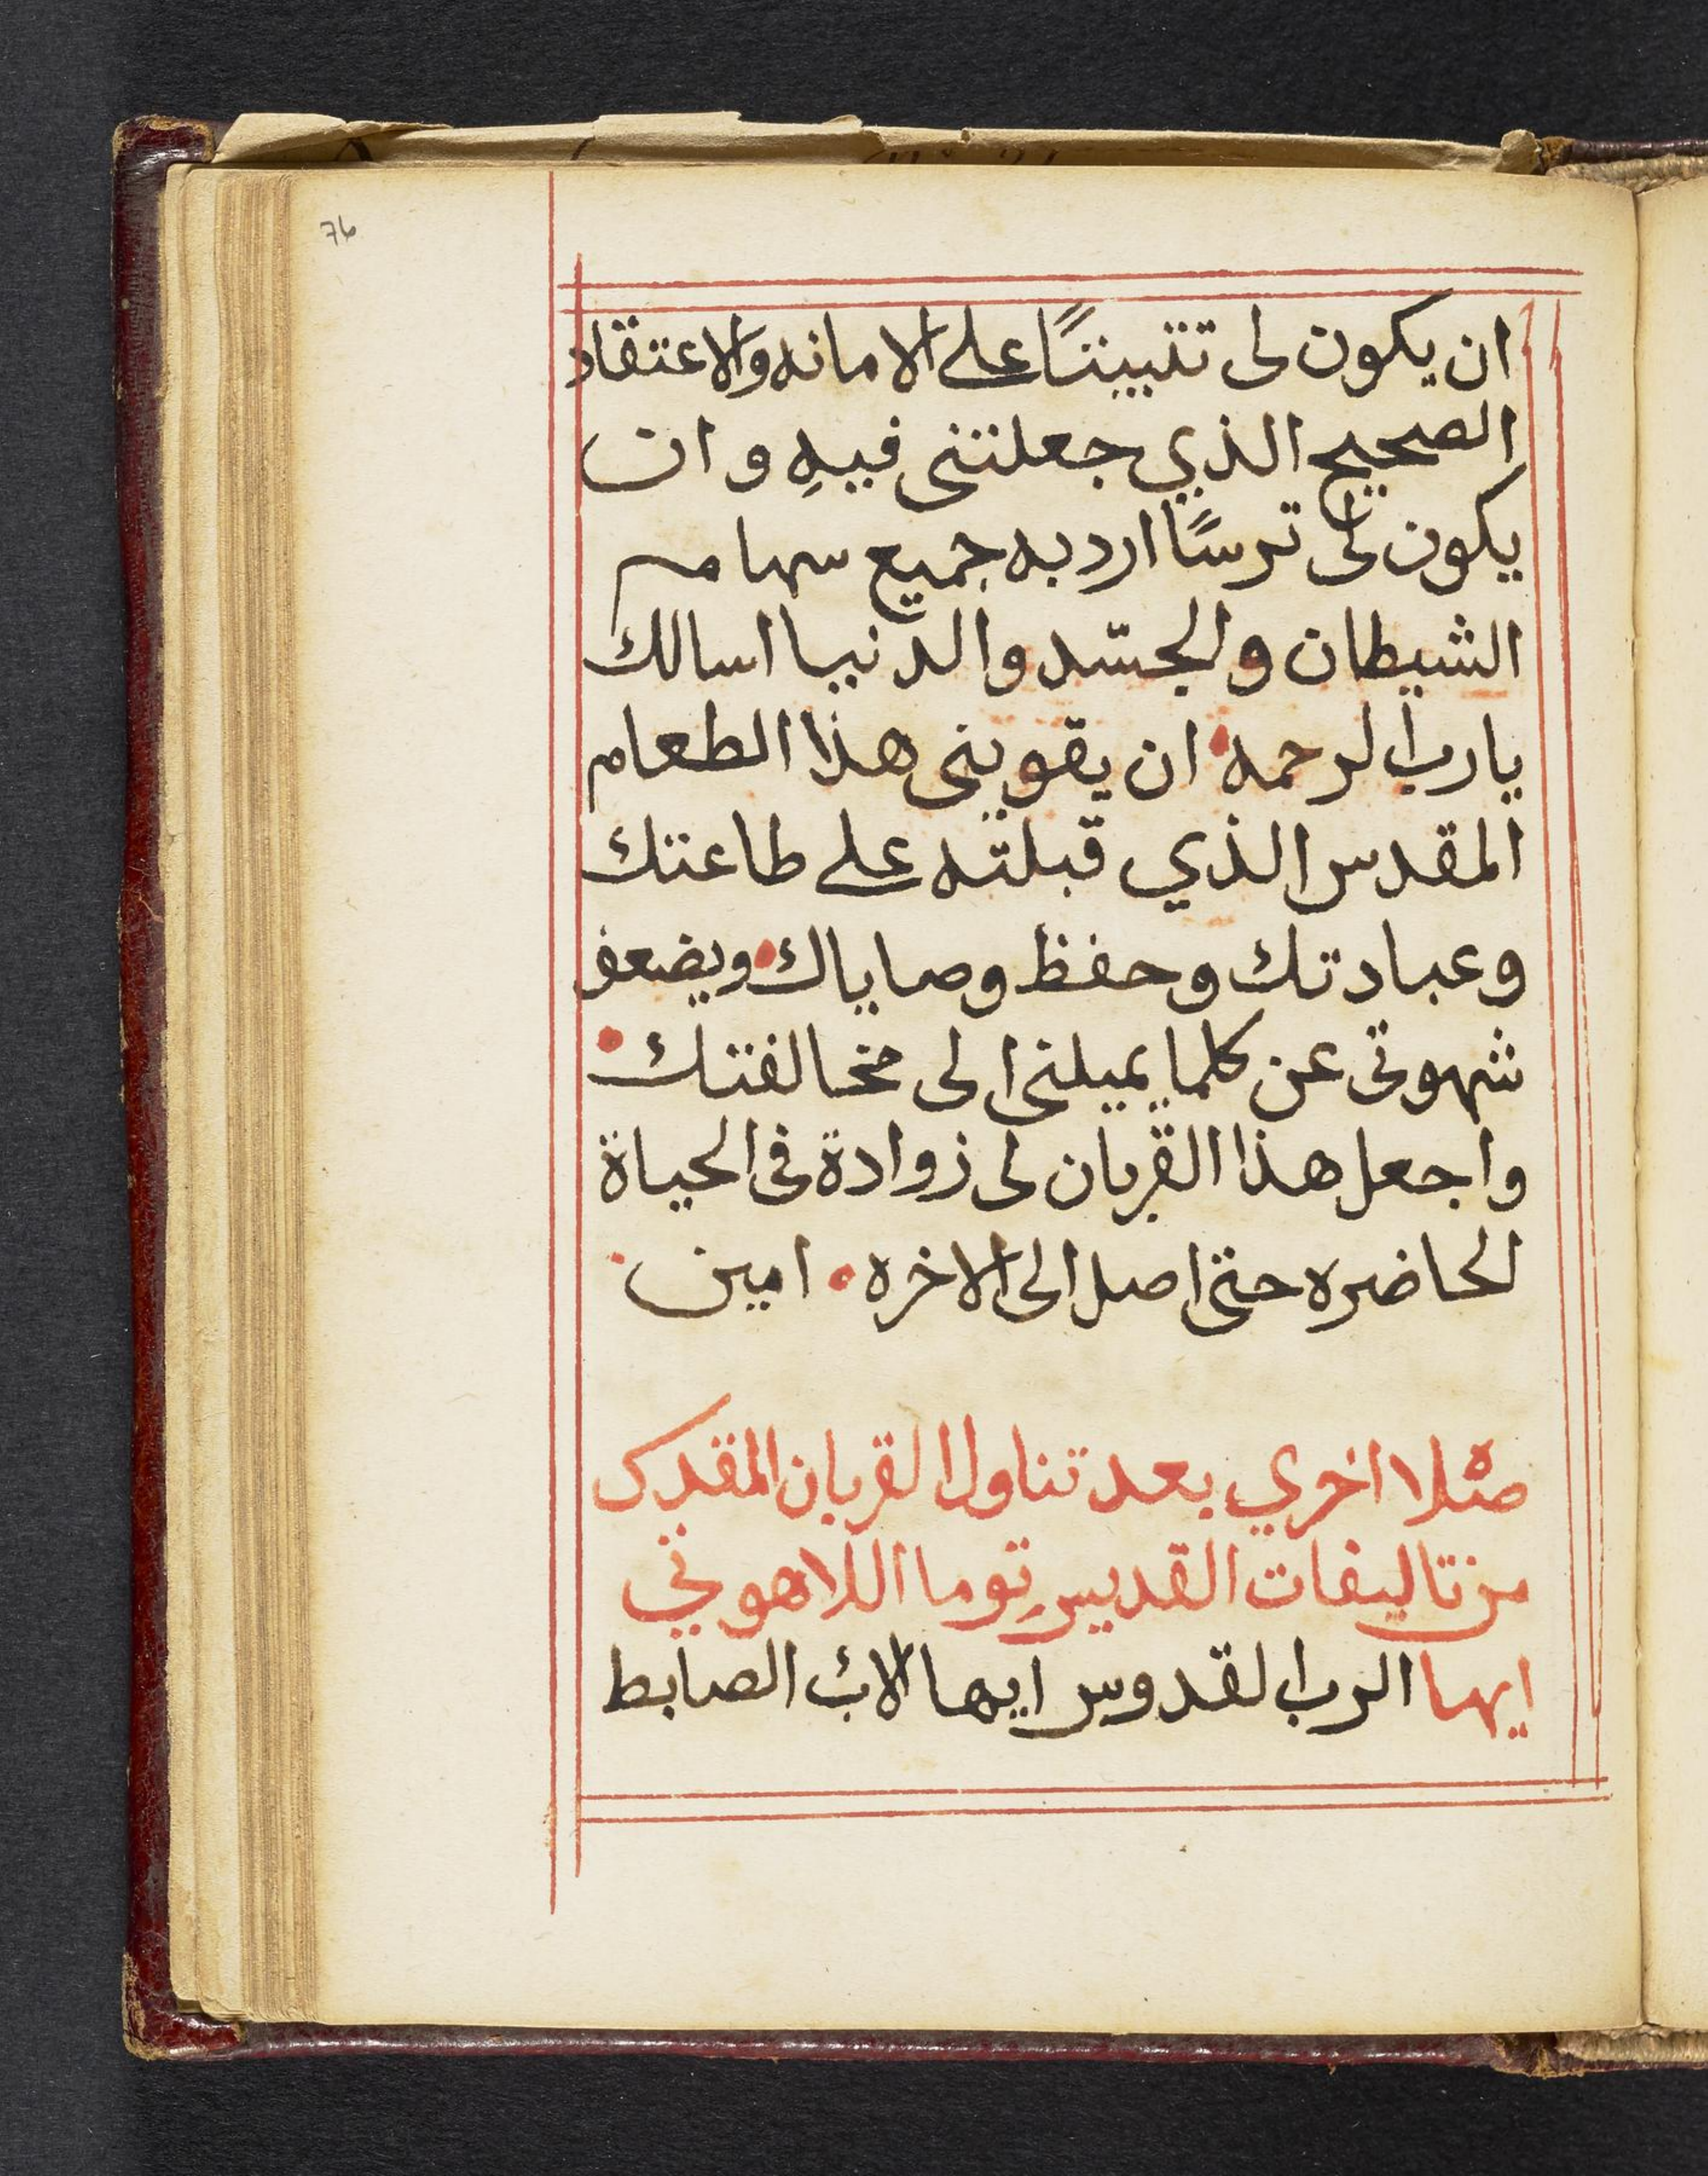 76
ان يكون لى تثبيتًا على الامانه والاعتقاد
الصحيح الذي جعلتنى فيهِ وان
يكون لى ترسًا ارد به جميع سهام
الشيطان والجسّد والدنيا اسالك
يارب الرحمه ان يقوينى هذا الطعام
المقدس الذي قبلته على طاعتك
وعبادتك وحفظ وصاياك ويضعف
شهوتى عن كلما يميلنى الى مخالفتك
واجعل هذا القربان لى زوادة فى الحياة
الحاضره حتى اصل الى الاخره امين
صلاه اخري بعد تناول القربان المقدس
من تاليفات القديس توما اللاهوتي
ايها الرب القدوس ايها الاب الضابط